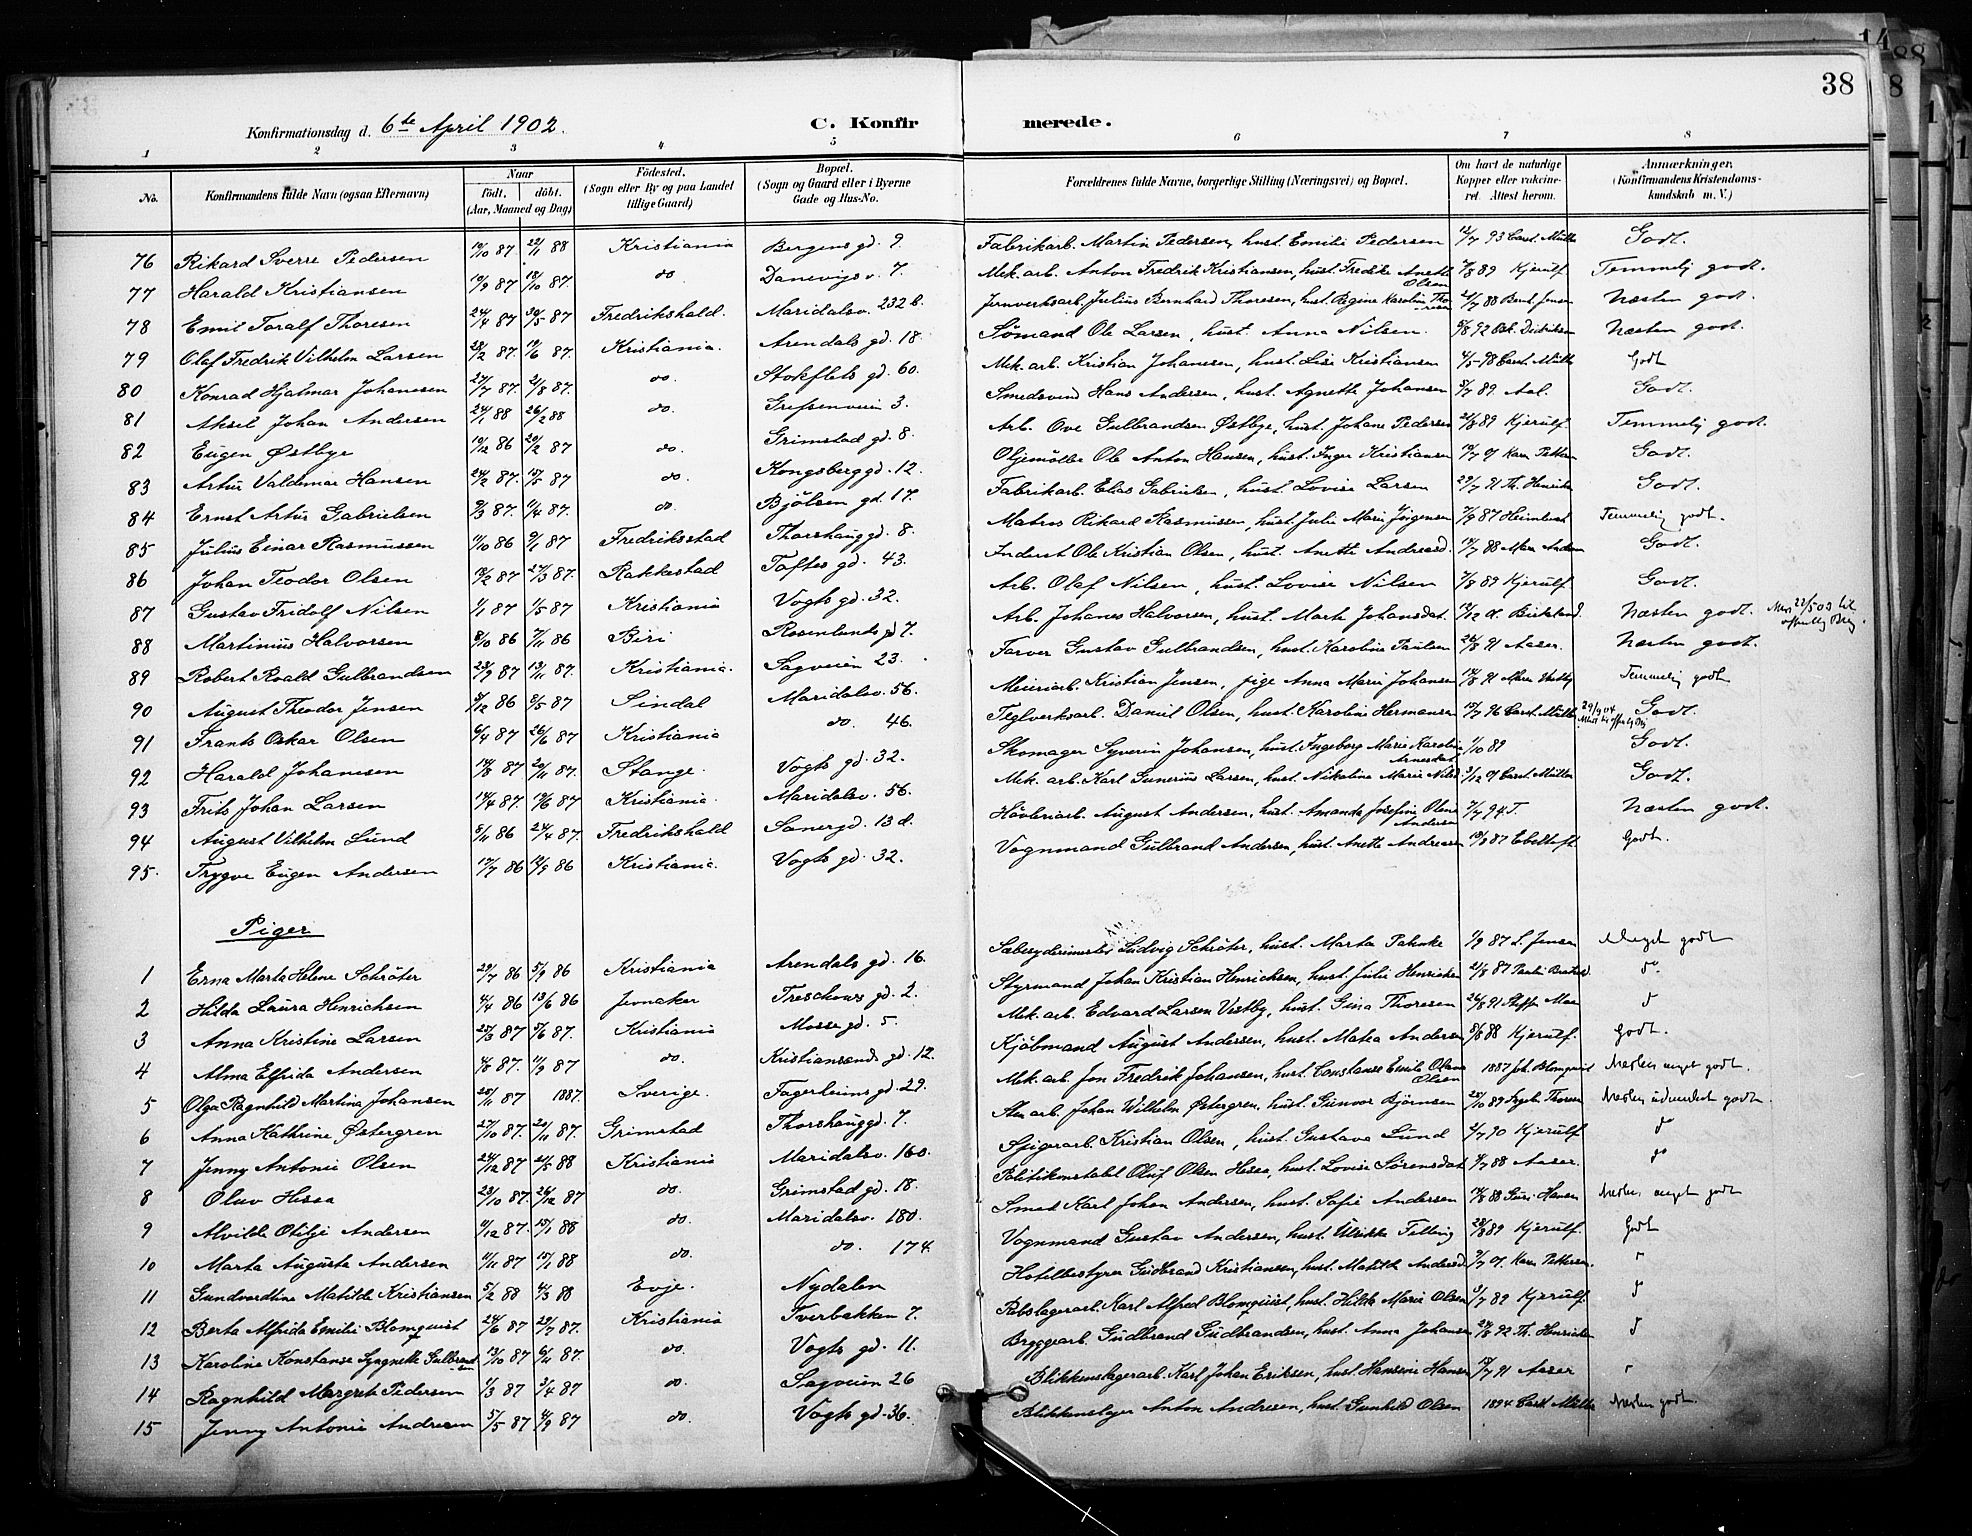 38
Konfirmationsdag d. 6te April 1902.
C. Konfirmerede.
1 2 3 4 5 6 7 8
No. Konfirmandens fulde Navn (ogsaa Efternavn) Naar födt. döbt. (Aar, Maaned og Dag) Födested. (Sogn eller By og paa Landet tillige Gaard) Bopæl. (Sogn og Gaard eller i Byerne Gade og Hus-No. Forældrenes fulde Navne, borgerlige Stilling (Næringsvei) og Bopæl. Om havt de naturlige Kopper eller vaccineret. Attest herom. Anmærkninger. (Konfirmandens Kristendomskundskab m. V.)
76 Rikard Sverre Pedersen 19/10 87 22/1 88 Kristiania Bergens gd. 9. Fabrikarb. Martin Pedersen, hust. Emilie Pedersen Godt.
77 Harald Kristiansen 19/9 87 13/10 87. do Danevigsv. 7. Mek. arb. Anton Fredrik Kristiansen, hust. Fredike Anette Olsen 7/8 89 Kjerulf. Temmelig godt.
78 Emil Toralf Thoresen 24/4 87 30/5 87 Fredrikshald. Maridalsv. 232 b. Jernverksarb. Julius Bernhard Thoresen, hust. Regine Karoline Thoresen Næsten godt.
79 Olaf Fredrik Vilhelm Larsen 28/2 87. 19/6 87. Kristiania. Arendals gd. 18. Sømand Ole Larsen, hust. Anna Nilsen. Næsten godt.
80 Konrad Hjalmar Johanesen 27/7 87. 21/8 87. do. Stokflets gd. 60. Mek. arb. Kristian Johanesen, hust. Lise Kristiansen Godt
81 Aksel Johan Andersen 24/1 88 26/2 88 do. Grefsenveien 3. Smedsvend Hans Andersen, hust. Agnette Johansen 5/7 89. Aal. Godt.
82 Eugen Østbye 19/12 86 20/2 87 do. Grimstad gd. 8. Arb. Ove Gulbrandsen Østbye, hust. Johane Pedersen 21/8 89 Kjerulf. Temmelig godt.
83 Artur Valdemar Hansen 24/2 87. 15/5 87 do. Kongsberg gd. 12. Oljemølle Ole Anton Hansen, hust. Inger Kristiansen Godt.
84 Ernst Artur Gabrielsen 9/3 87. 11/4 87. do. Bjölsen gd. 17. Fabrikarb. Elias Gabrielsen, hust. Lovise Larsen Godt.
85 Julius Einar Rasmussen 11/10 86 9/1 87 Fredriksstad Thorshauggd. 8. Matros Rikard Rasmussen, hust. Julie Marie Jørgensen Temmelig godt.
86 Johan Teodor Olsen 19/2 87 27/3 87. Rakkestad Toftes gd. 43. Inderst Ole Kristian Olsen, hust. Anette Andreasd. Godt.
87 Gustav Fridolf Nilsen 1/1 87 1/5 87 Kristiania Vogts gd. 32. Arb. Olaf Nilsen, hust. Lovise Nilsen 7/8 89 Kjerulf. Godt.
88 Martinius Halvorsen 8/10 86 7/11 86 Biri Rosenlunds gd 7. Arb. Johanes Halvorsen, hust. Marte Johansdat. Næsten godt.
89 Robert Roald Gulbrandsen 23/9 87 13/11 87. Kristiania. Sagveien 23. Farver Gustav Gulbrandsen, hust. Karoline Paulsen 26/8 91 Aaser. Næsten godt.
90 August Theodor Jensen 3/12 86 8/5 87 Sindal Maridalsv. 56. Meieriarb. Kristian Jensen, pige Anna Marie Johansen Temmelig godt
91 Frants Oskar Olsen 6/4 87 26/6 87 Kristiania do. 46. Teglverksarb. Daniel Olsen, hust. Karoline Hermansen Godt.
92 Harald Johanesen 14/8 87 20/11 87. Stange. Vogts gd. 32. Skomager Syverin Johansen, hust. Ingeborg Marie Karoline Arnesdat 1/10 89 Godt.
93 Frits Johan Larsen 14/4 87. 19/6 87 Kristiania. Maridalsv. 56. Mek. arb. Karl Gunerius Larsen, hust. Nikoline Marie Nilsd Godt.
94 August Vilhelm Lund 5/11 86 24/4 87. Fredrikshald Sanergd. 13 d. Høvleriarb. August Andersen, hust. Amanda Josefine Olsen Andersen 2/7 94 T. Næsten godt.
95. Trygve Eugen Andersen 17/7 86 12/9 86 Kristiania. Vogts gd. 32. Vognmand Gulbrand Andersen, hust. Anette Andreasen Godt.
Piger
1 Erna Marta Helene Schröter 29/7 86 5/9 86 Kristiania Arendals gd. 16. Sæbesyderimester Ludvig Schröter, hust. Marta Pahnke 1/9 87 L. Jensen Meget godt
2 Hilda Laura Henrichsen 4/4 86 13/6 86 Jevnaker Treschows gd. 2. Styrmand Johan Kristian Henrichsen, hust. Julie Henriksen do.
3 Anna Kristine Larsen 25/3 87 5/6 87. Kristiania Mosse gd. 5. Mek. arb. Edvard Larsen Vestby, hust. Gina Thoresen do
4 Alma Elfrida Andersen 4/6 87. 11/9 87 do. Kristiansands gd. 12. Kjøbmand August Andersen, hust. Matea Andersen 8/6 88 Kjerulf. Godt.
5 Olga Ragnhild Martina Johansen 28/11 87 1887. Sverige. Fagerheims gd. 29. Mek. arb. Jon Fredrik Johansen, hust. Constanse Emilie Olava Olsen 1887 Joh. Blomquist Næsten meget godt.
6 Anna Kathrine Østergren 27/10 87. 20/11 87. Grimstad Thorshauggd. 7. Sten arb. Johan Wilhelm Østergren, hust. Gunvor Bjørnsen
7 Jenny Antonie Olsen 24/12 87 21/5 88 Kristiania Maridalsv. 160. Spigerarb. Kristian Olsen, hust. Gustava Lund 4/7 90 Kjerulf do
8 Oluv Hessa 23/10 87. 26/12 87 do. Grimstad gd. 18. Politikonstabel Oluf Olsen Hessa, hust. Lovise Sørensdat Aaser. do
9 Alvilde Otilje Andersen 11/12 87. 15/1 88 do. Maridalsv. 180. Smed Karl Johan Andersen, hust. Sofie Andersen Næsten meget godt
10 Marta Augusta Andersen 11/11 87 15/1 88 do. do. 174. Vognmand Gustav Andersen, hust. Ulrikke Telling 28/8 89 Kjerulf. Godt
11 Gundvordine Matilde Kristiansen 5/2 88 4/3 88 Evje. Nydalen Hotelbestyrer Gudbrand Kristiansen, hust. Matilde Andersd
12 Berta Alfrida Emilie Blomquist 24/6 87 29/7 87. Kristiania Tverbakken 7. Rebslagerarb. Karl Alfred Blomquist, hust. Hilda Marie Olsen 3/7 89 Kjerulf. do
13 Karoline Konstanse Syngnette Gulbrandsen 13/10 87 6/11 87. do. Vogts gd. 11. Bryggearb. Gudbrand Gudbrandsen, hust. Anna Johansen 24/8 92 Th. Henriksen do
14 Ragnhild Margrete Pedersen 1/3 87 3/4 87 do. Sagveien 26 Blikkenslagerarb. Karl Johan Eriksen, hust. Hansine Hansen 18/7 91 Aaser
15 Jenny Antonie Andresen 5/5 87 4/9 87 do Vogts gd. 36. Blikkenslager Anton Andresen, hust. Gunhild Olsen 1894 Næsten godt.